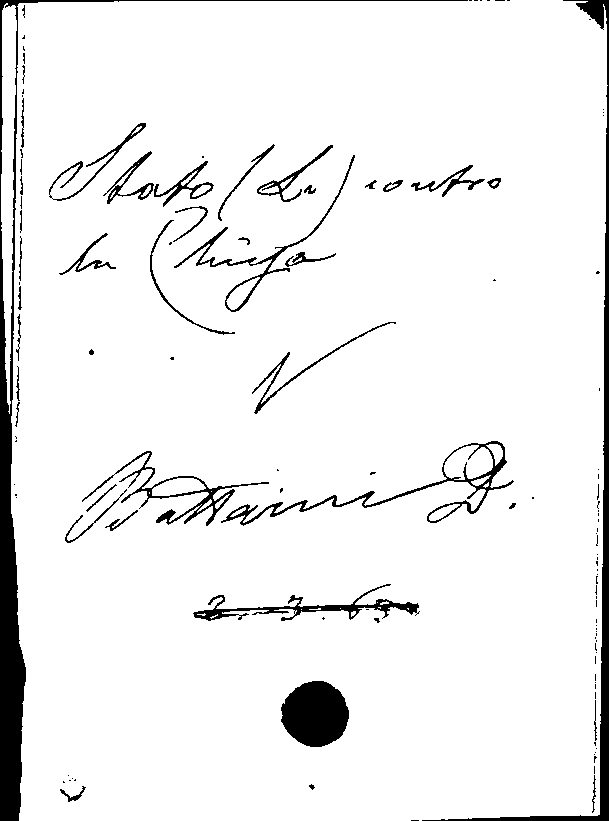 Stato (Lo) contro
la Chiesa
V
Battaini D.
2. 3. 63